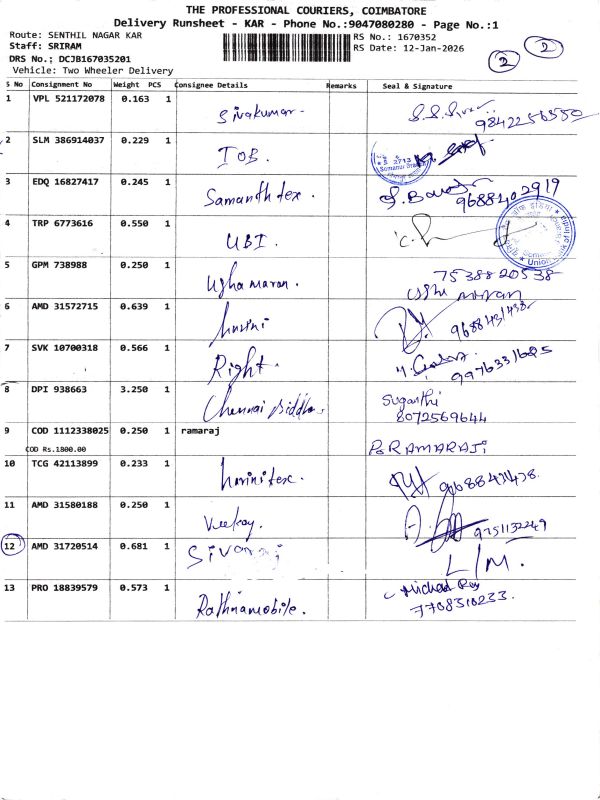 THE PROFESSIONAL COURIERS, COIMBATORE
Delivery Runsheet - KAR - Phone No.:9047080280 - Page No.:1
Route: SENTHIL NAGAR KAR
RS No.: 1670352
Staff: SRIRAM
RS Date: 12-Jan-2026
2 2
DRS No.; DCJB167035201
Vehicle: Two Wheeler Delivery
S No Consignment No Weight PCS Consignee Details Remarks Seal & Signature
1 VPL 521172078 0.163 1 Sivakumar 9842256550
2 SLM 386914037 0.229 1 IOB.
3 EDQ 16827417 0.245 1 Samanthtex. 9688402919
4 TRP 6773616 0.550 1 UBI. Union Bank of India
5 GPM 738988 0.250 1 Ughamaran. 7538820538
6 AMD 31572715 0.639 1 hurini 9688431438
7 SVK 10700318 0.566 1 Right. 9976331625
8 DPI 938663 3.250 1 Chennai Siddha. Suganthi
8072569644
9 COD 1112338025 0.250 1 ramaraj
COD Rs.1800.00
P.RAMARAJ
10 TCG 42113899 0.233 1 hurinitex. 9688431438.
11 AMD 31580188 0.250 1 Veekay. 9751132249
12 AMD 31720514 0.681 1 Sivaraj L/M.
13 PRO 18839579 0.573 1 Rathnamobile. Michael Roy
7708310233.